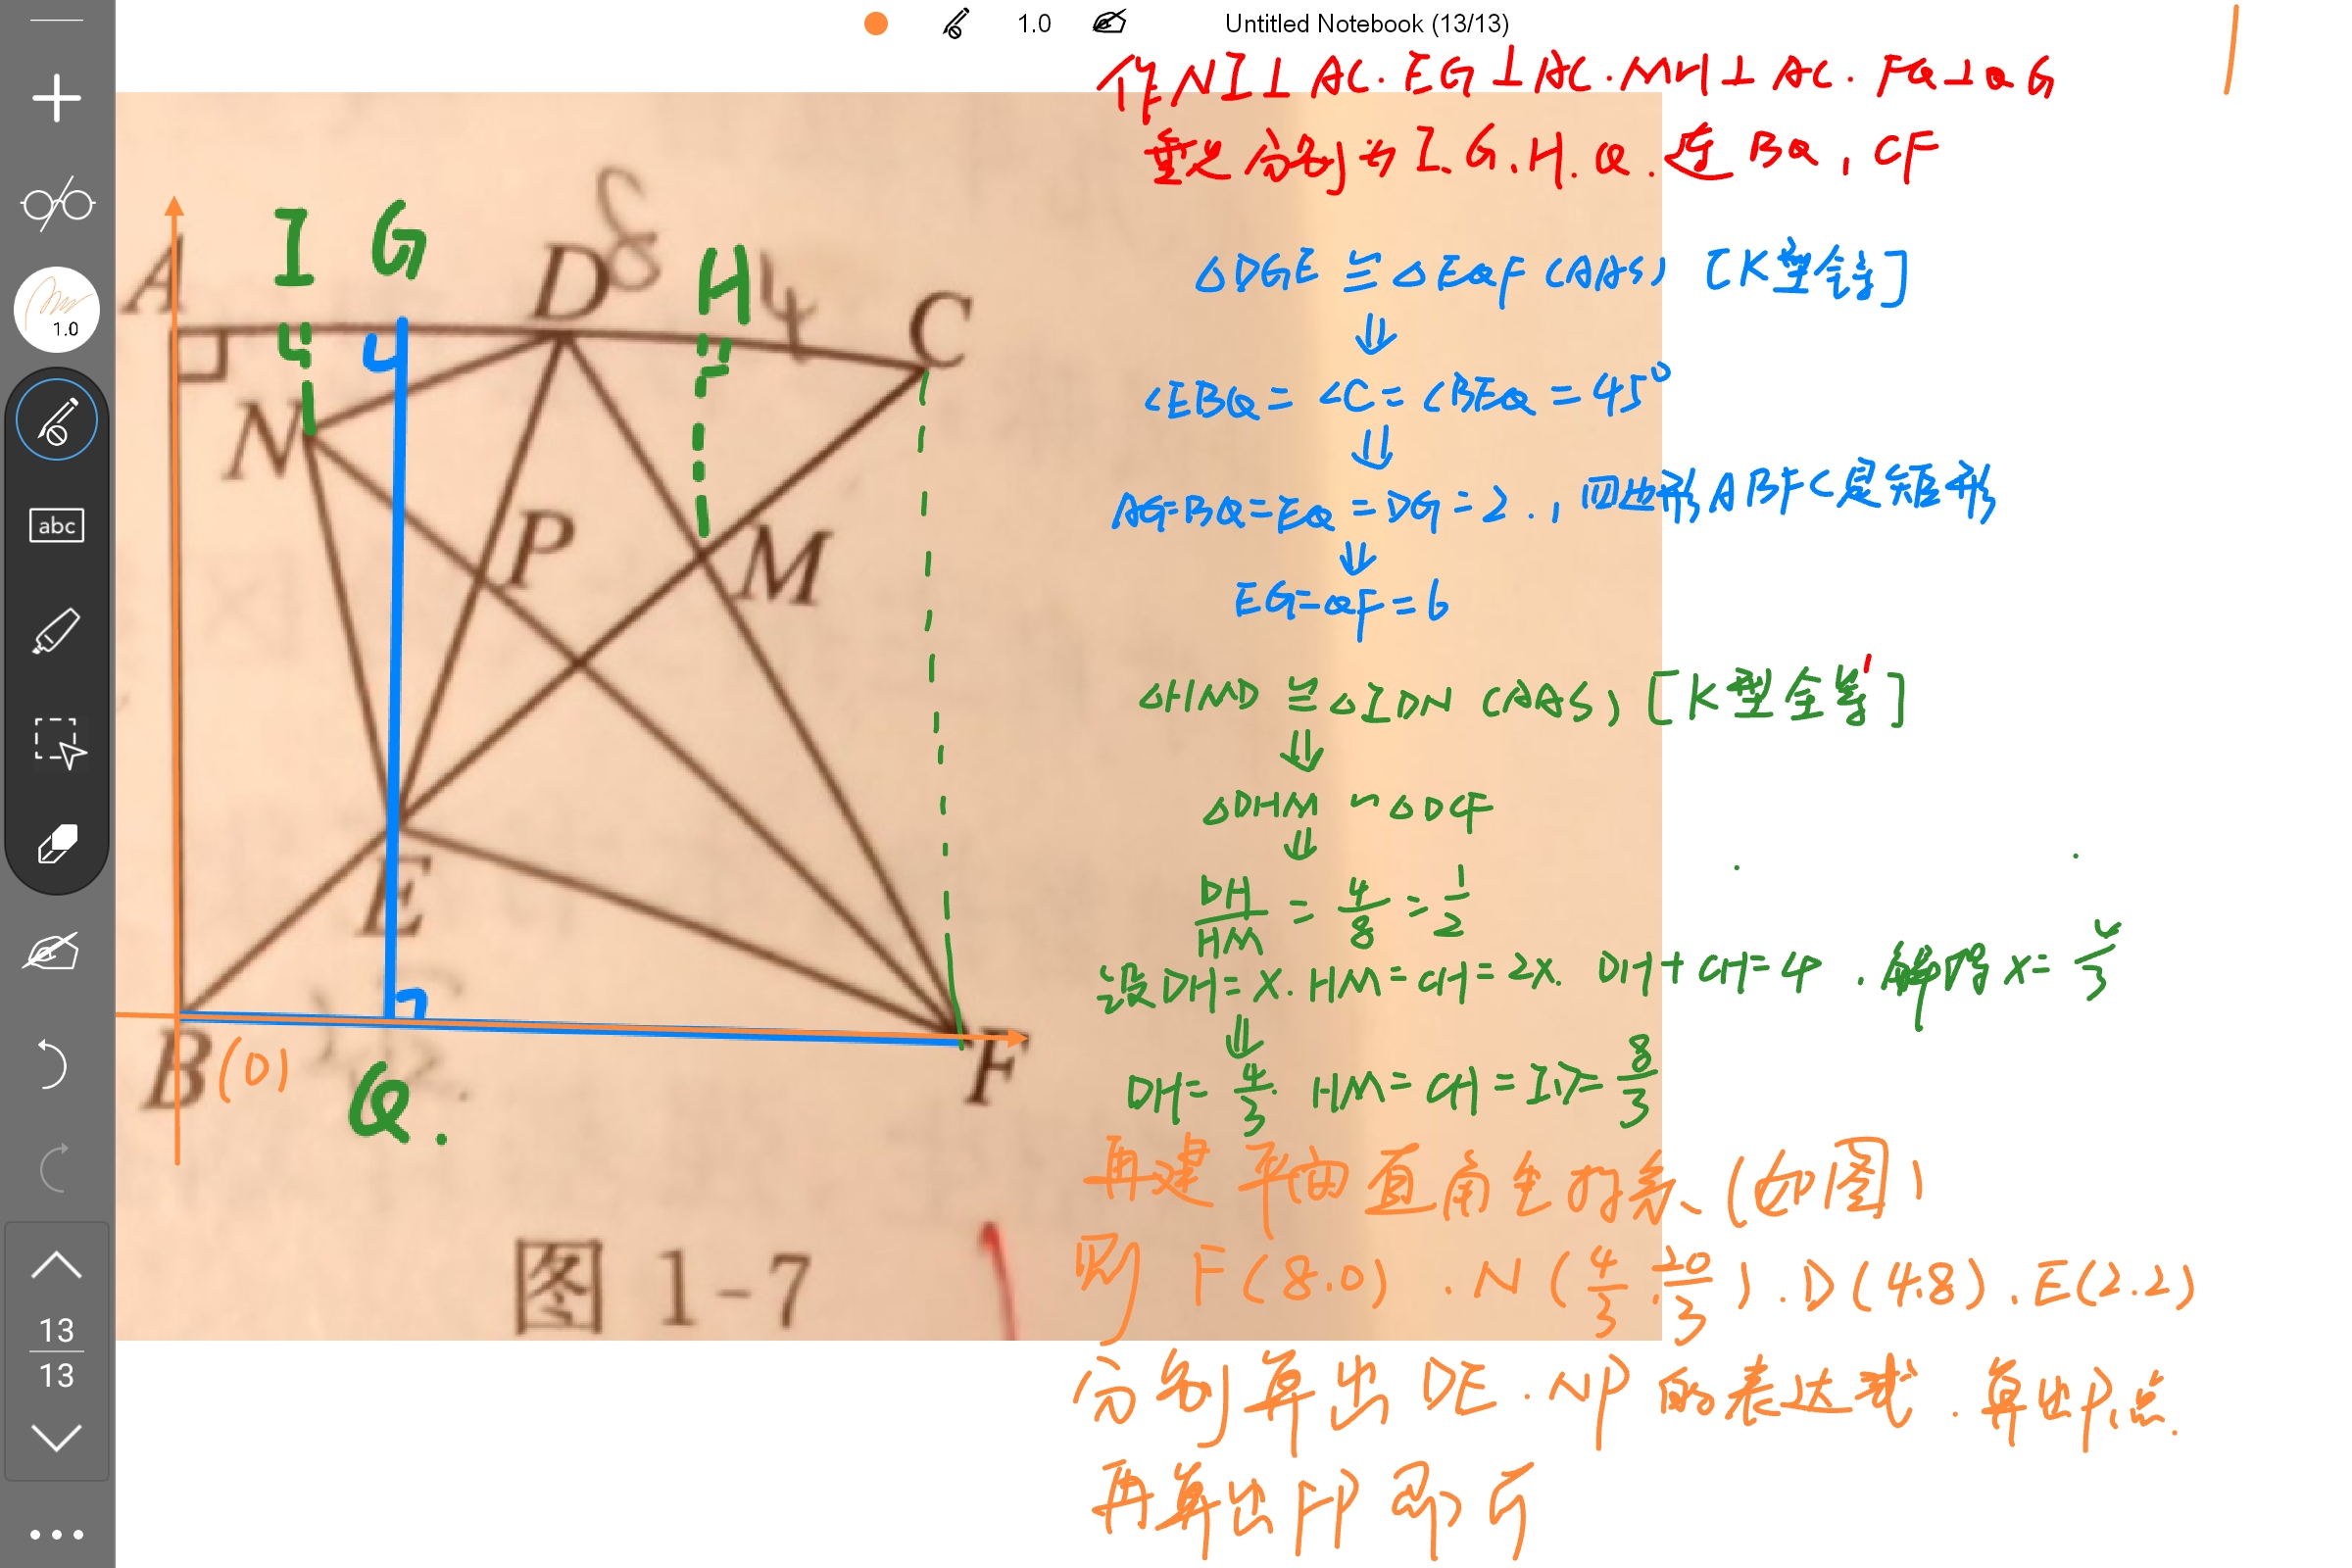 1.0
Untitled Notebook (13/13)
作NI⊥AC.EG⊥AC.MH⊥AC.FQ⊥QG
垂足分别为I.G.H.Q.连BQ,CF
△DGE≌△EQF(AAS) [K型全等]
⇓
∠EBQ=∠C=∠BEQ=45°
⇓
AG=BQ=EQ=DG=2.,四边形ABFC是矩形
⇓
EG=QF=6
△HMD≌△IDN(AAS) [K型全等]
⇓
△DHM∽△DCF
⇓
DH/HM=4/8=1/2
设DH=x.HM=CH=2x.DH+CH=4.解得x=4/3
⇓
DH=4/3.HM=CH=ID=8/3
再建平面直角坐标系(如图)
则F(8.0).N(4/3.20/3).D(4.8).E(2.2)
分别算出DE.NP的表达式.算出P点.
再算出FP即可
A
I
G
D
8
H
4
C
N
P
M
E
B(0)
Q.
F
图 1-7
1.0
abc
13
13